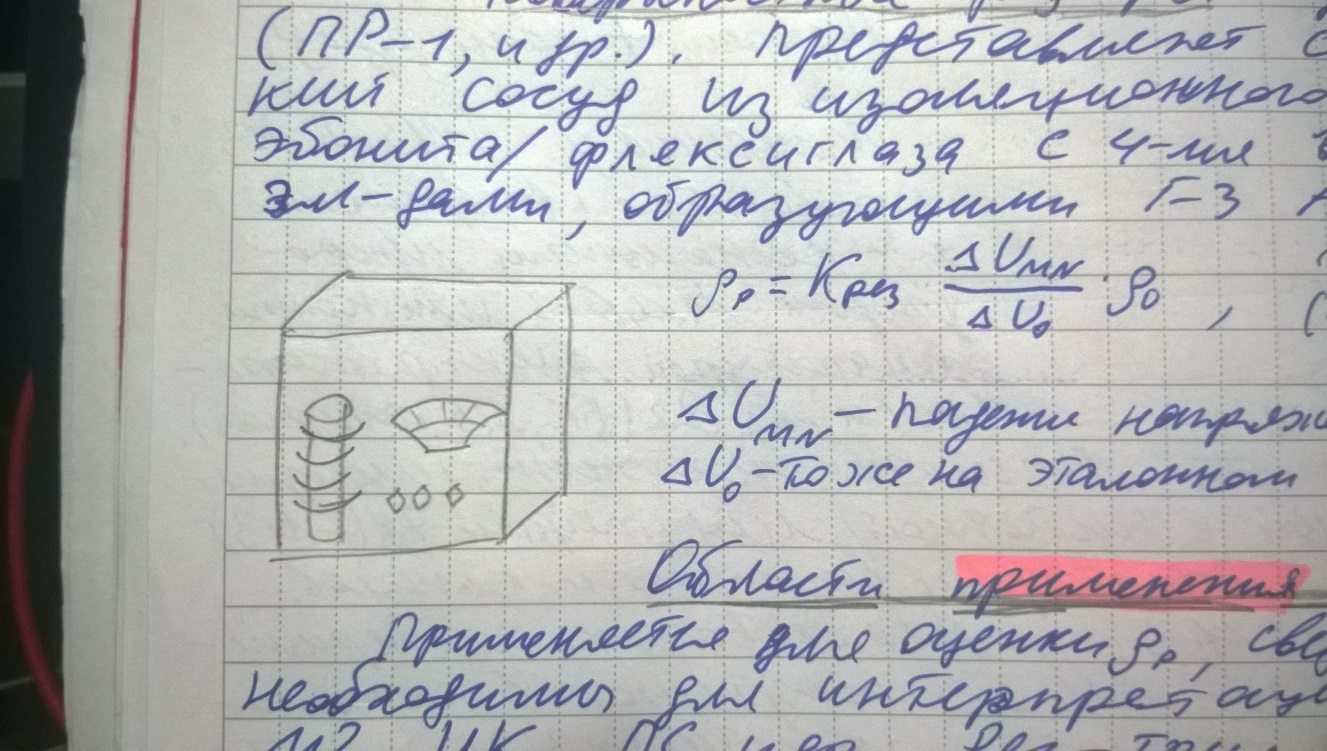 (ПР-1, и др.), представляет с
кий сосуд из изоляционного
эбонита/флексиглаза с 4-мя
эл-дами, образующими Г-З А
ρр = Kрез ΔUMN/ΔU₀ · ρ₀ , (
ΔUMN – падение напряж
ΔU₀ – тоже на эталонном
Области применения
Применяется для оценки ρр, све
необходимы для интерпретац